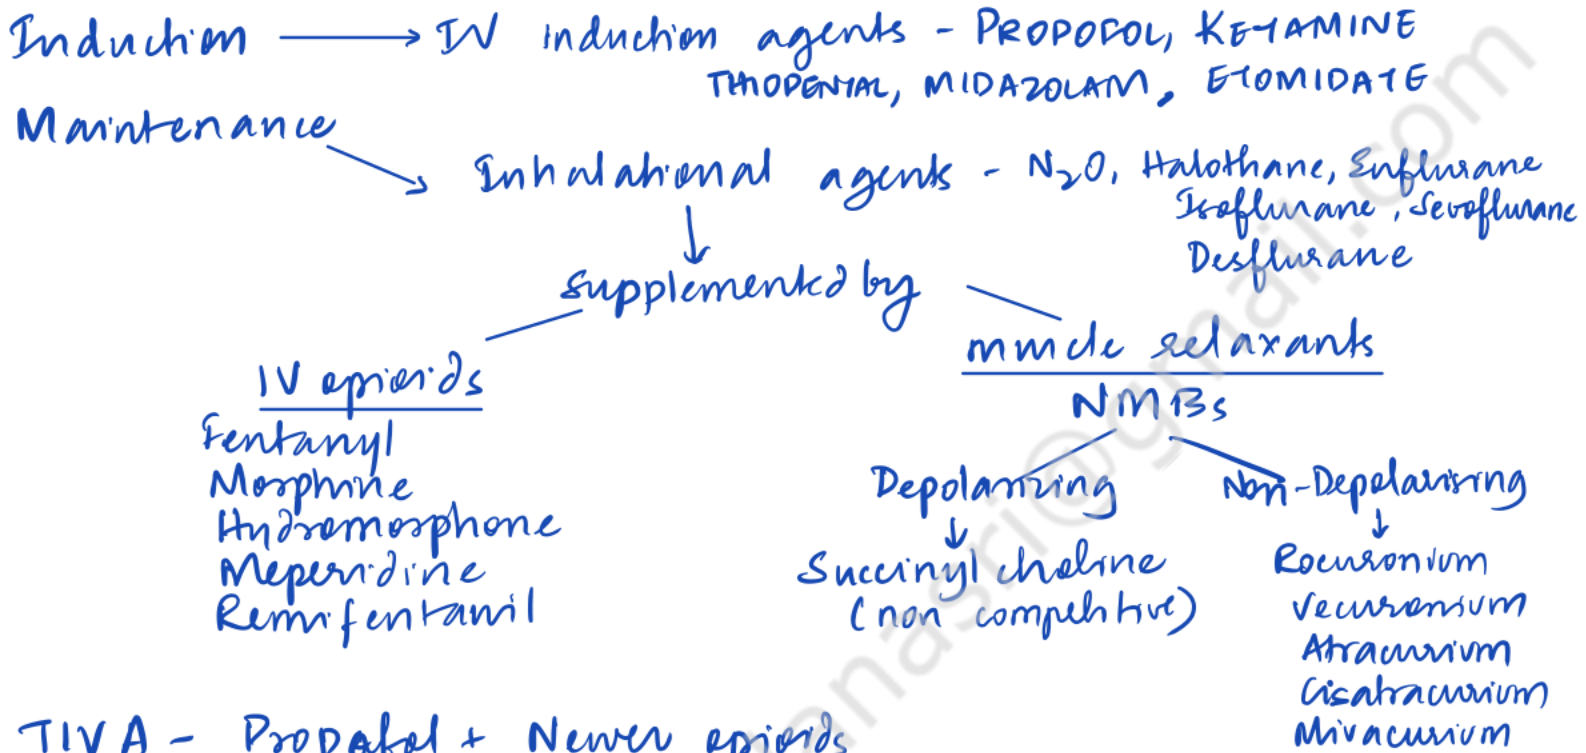 Induction → IV induction agents - PROPOFOL, KETAMINE
THIOPENTAL, MIDAZOLAM, ETOMIDATE
Maintenance
Inhalational agents - N₂O, Halothane, Enflurane
Isoflurane, Sevoflurane
Desflurane
supplemented by
IV opioids
Fentanyl
Morphine
Hydromorphone
Meperidine
Remifentanil
muscle relaxants
NMBs
Depolarizing
Succinyl choline
(non competitive)
Non-Depolarising
Rocuronium
Vecuronium
Atracurium
Cisatracurium
Mivacurium
TIVA - Propofol + Newer opioids
anasri@gmail.com